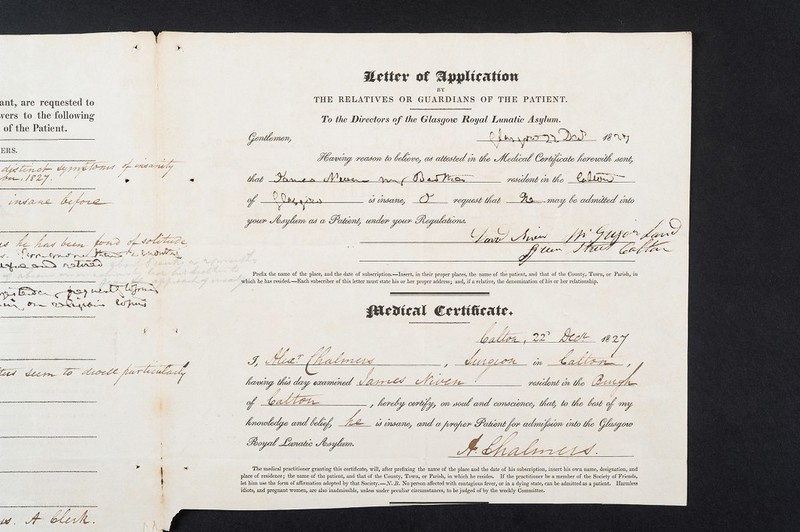 ant, are requested to
vers to the following
of the Patient.
ERS.
distinct symptoms of insanity
1827.
insane before
he has been fond of solitude
retired
on religious topics
seem to dwell particularly
A Clerk.
Letter of Application
BY
THE RELATIVES OR GUARDIANS OF THE PATIENT.
To the Directors of the Glasgow Royal Lunatic Asylum.
Gentlemen,
Glasgow 22 Decr 1827
Having reason to believe, as attested in the Medical Certificate herewith sent,
that James Niven my Brother resident in the Calton
of Glasgow is insane, I request that He may be admitted into
your Asylum as a Patient, under your Regulations.
David Niven Land
Street Calton
Prefix the name of the place, and the date of subscription.—Insert, in their proper places, the name of the patient, and that of the County, Town, or Parish, in
which he has resided.—Each subscriber of this letter must state his or her proper address; and, if a relative, the denomination of his or her relationship.
Medical Certificate.
Calton, 22d Decr 1827
I, Alexr Chalmers, Surgeon in Calton,
having this day examined James Niven resident in the Burgh
of Calton, hereby certify, on soul and conscience, that, to the best of my
knowledge and belief, he is insane, and a proper Patient for admission into the Glasgow
Royal Lunatic Asylum.
A Chalmers.
The medical practitioner granting this certificate, will, after prefixing the name of the place and the date of his subscription, insert his own name, designation, and
place of residence; the name of the patient, and that of the County, Town, or Parish, in which he resides. If the practitioner be a member of the Society of Friends,
let him use the form of affirmation adopted by that Society.—N. B. No person affected with contagious fever, or in a dying state, can be admitted as a patient. Harmless
idiots, and pregnant women, are also inadmissible, unless under peculiar circumstances, to be judged of by the weekly Committee.